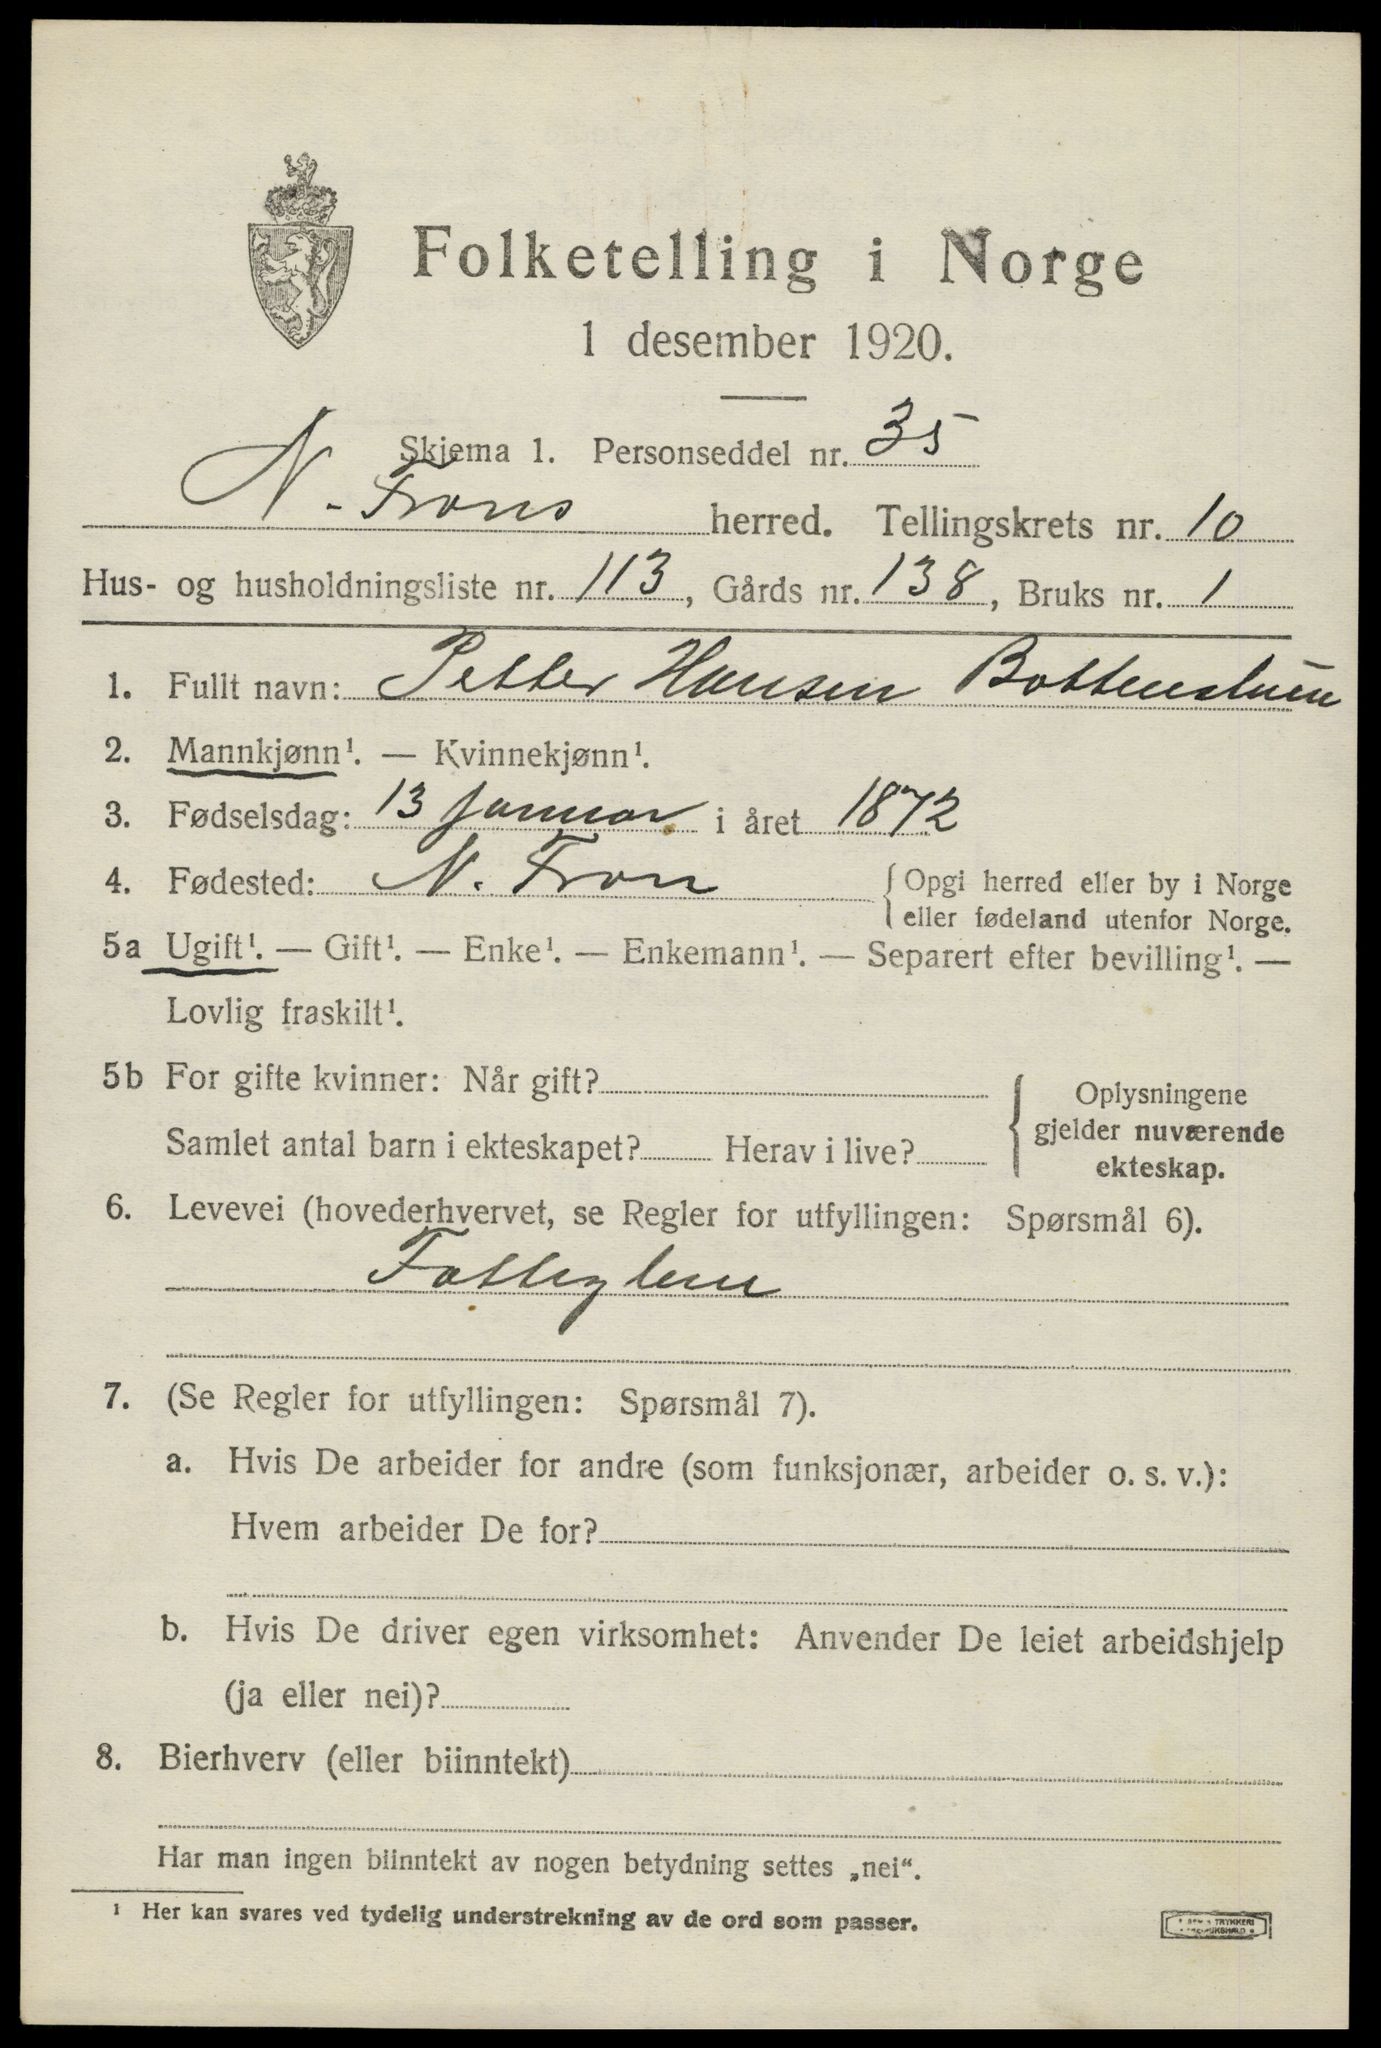 Folketelling i Norge
1 desember 1920.
Skjema 1. Personseddel nr. 35
N. Frons herred. Tellingskrets nr. 10
Hus- og husholdningsliste nr. 113, Gårds nr. 138, Bruks nr. 1
1. Fullt navn: Petter Hansen
2. Mannkjønn¹. — Kvinnekjønn¹.
3. Fødselsdag: 13 januar i året 1872
4. Fødested: N. Fron { Opgi herred eller by i Norge
eller fødeland utenfor Norge.
5a Ugift¹. — Gift¹. — Enke¹. — Enkemann¹. — Separert efter bevilling¹. —
Lovlig fraskilt¹.
5b For gifte kvinner: Når gift?
Samlet antal barn i ekteskapet? Herav i live?
{ Oplysningene
gjelder nuværende
ekteskap.
6. Levevei (hovederhvervet, se Regler for utfyllingen: Spørsmål 6).
Fattiglem
7. (Se Regler for utfyllingen: Spørsmål 7).
a. Hvis De arbeider for andre (som funksjonær, arbeider o. s. v.):
Hvem arbeider De for?
b. Hvis De driver egen virksomhet: Anvender De leiet arbeidshjelp
(ja eller nei)?
8. Bierhverv (eller biinntekt)
Har man ingen biinntekt av nogen betydning settes „nei“.
¹ Her kan svares ved tydelig understrekning av de ord som passer.